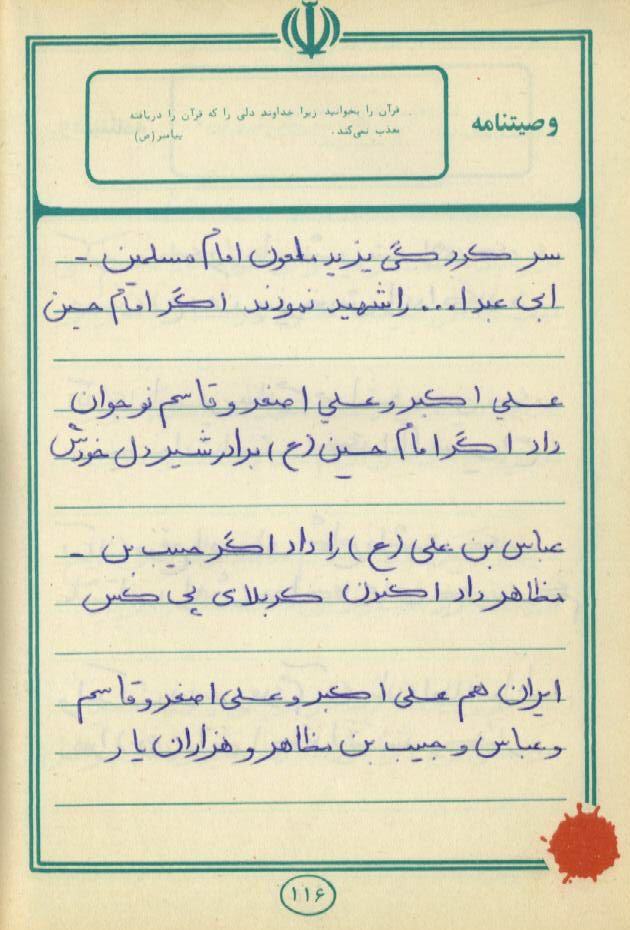 وصیتنامه
قرآن را بخوانید زیرا خداوند دلی را که قرآن را دریافته
معذب نمی‌کند. پیامبر (ص)
سر کردگی یزید ملعون امام مسلمین -
ابی عبدا... را شهید نمودند اگر امام حسین
علی اکبر و علی اصغر و قاسم نوجوان
داد اگر امام حسین (ع) برادر شیر دل خودش
عباس بن علی (ع) را داد اگر حبیب بن -
مظاهر داد اکنون کربلای پی کس
ایران هم علی اکبر و علی اصغر و قاسم
و عباس و حبیب بن مظاهر و هزاران یار
۱۱۶